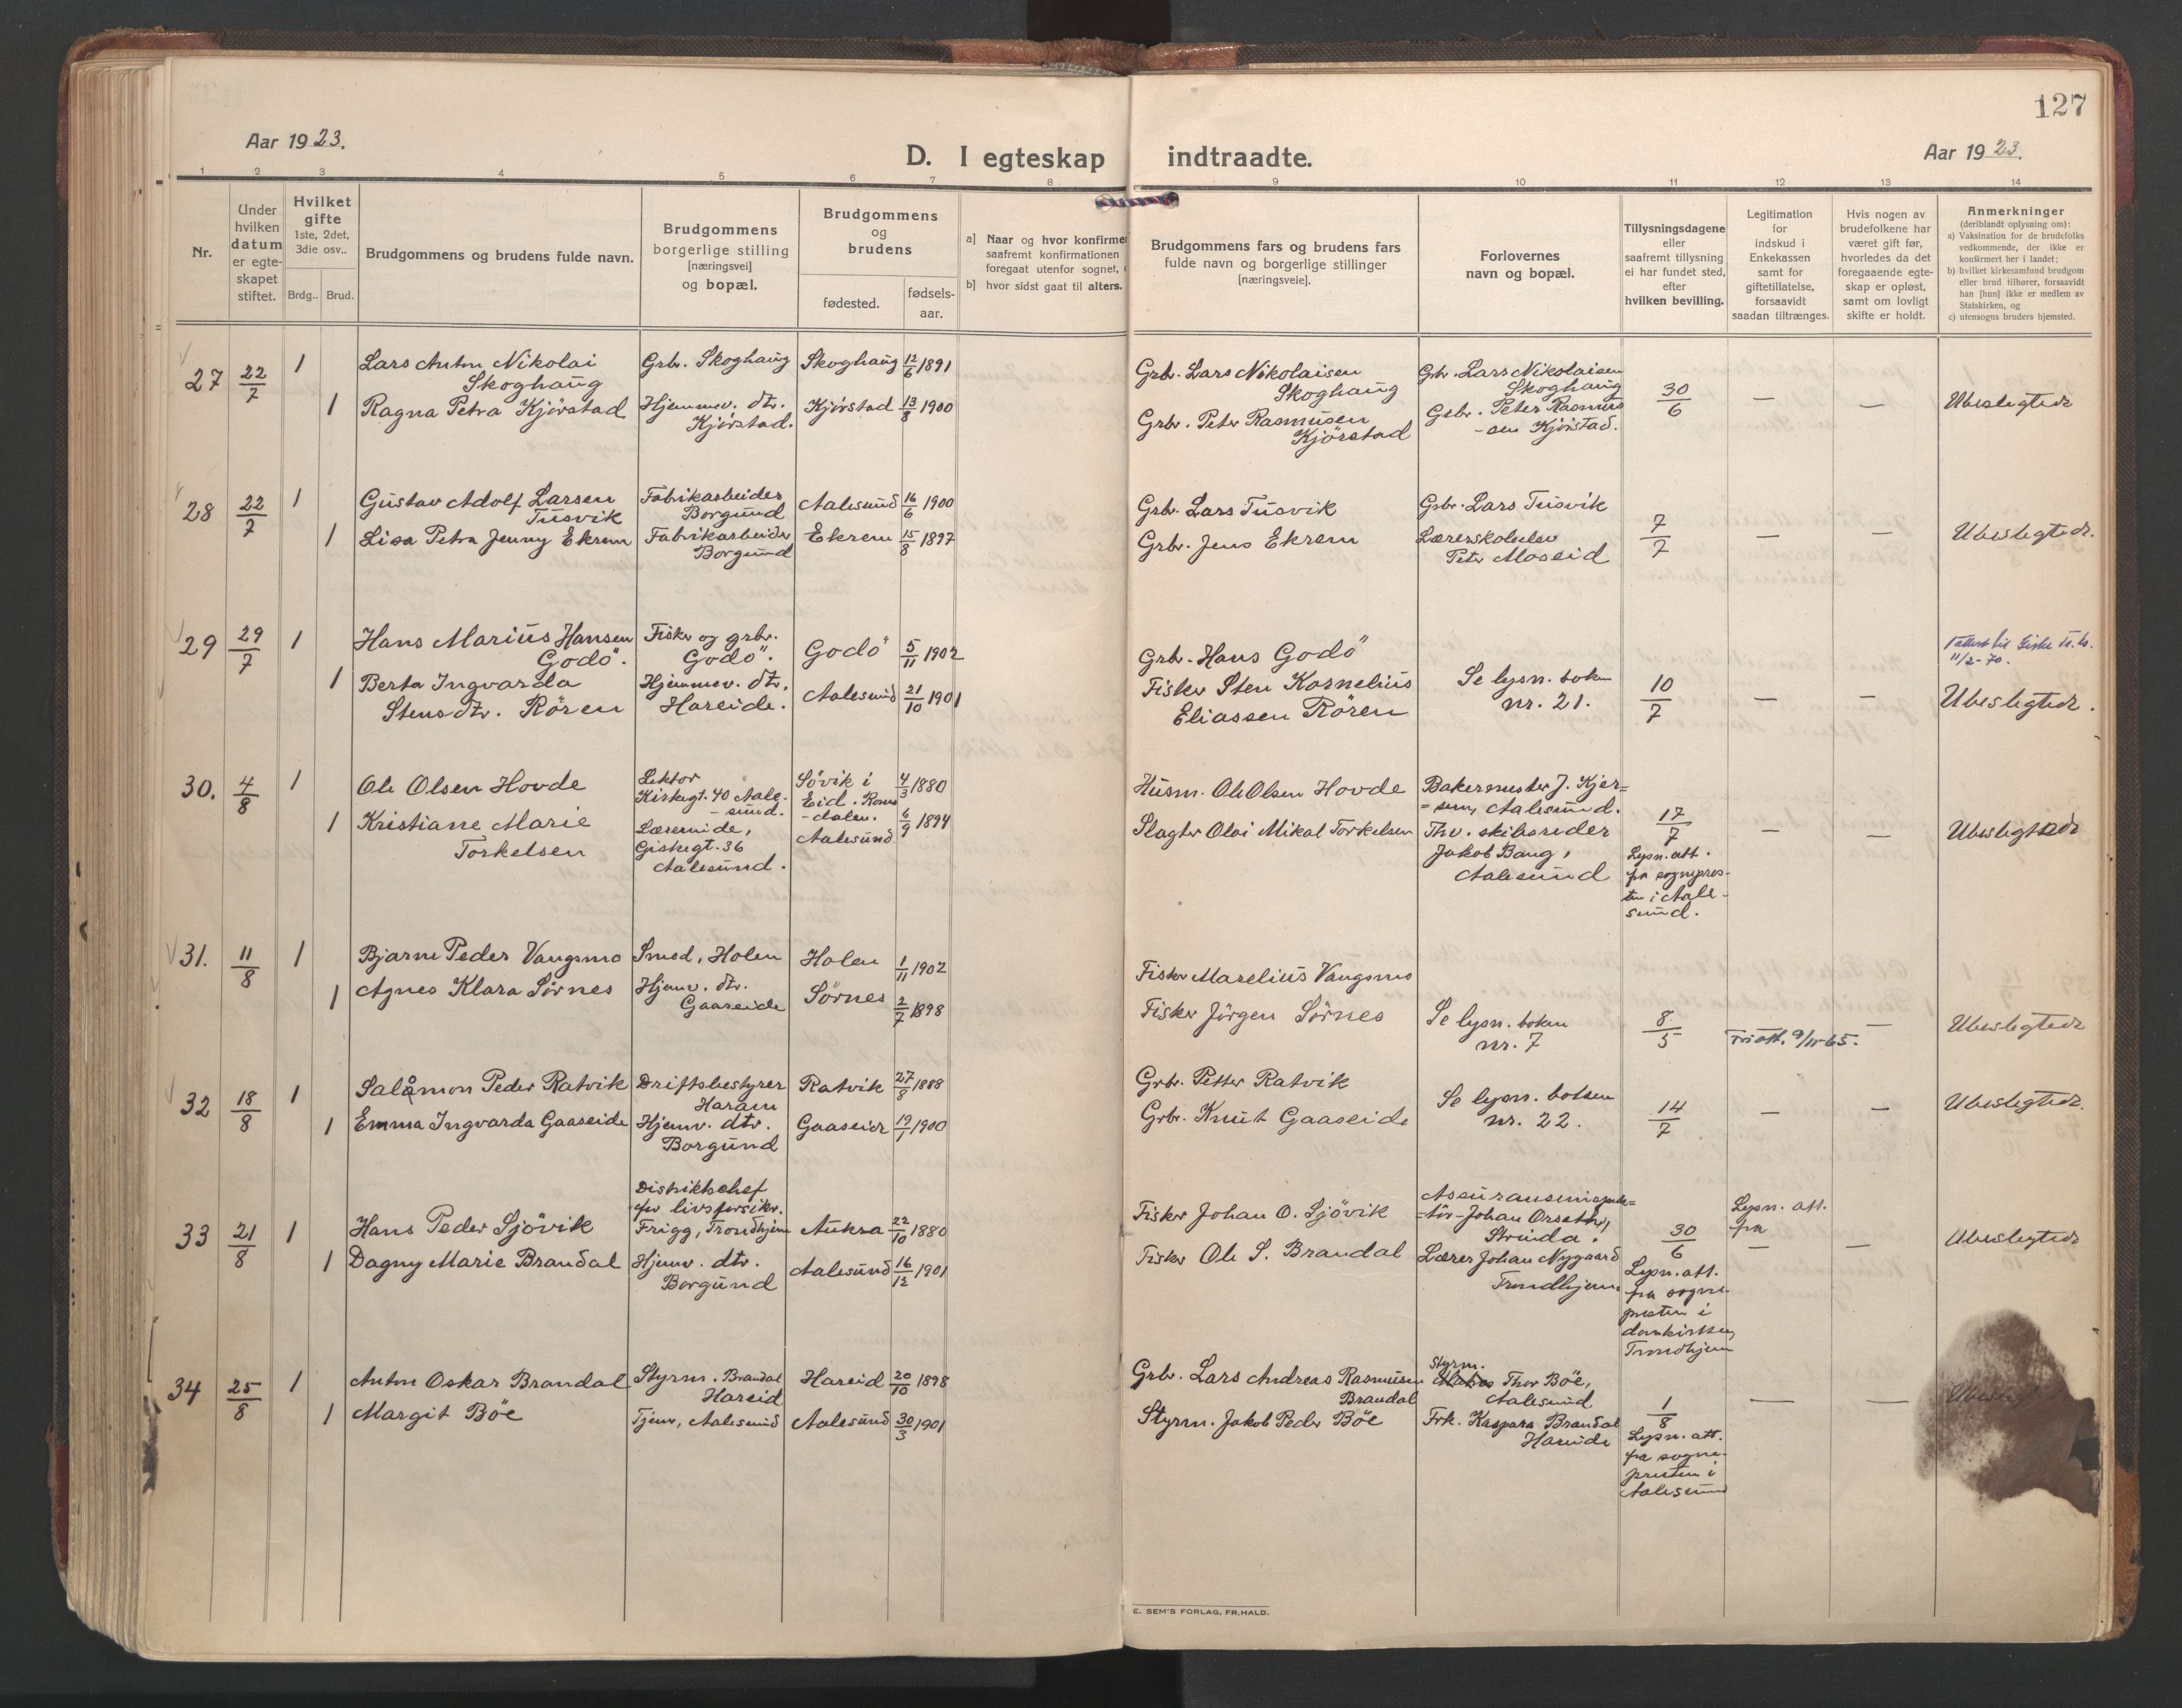 127
Aar 1923.
D. I egteskap indtraadte.
Aar 1923.
1 2 3 4 5 6 7 8 9 10 11 12 13 14
Nr.
Under hvilken datum er egte-skapet stiftet.
Hvilket gifte
1ste, 2det, 3die osv..
Brdg.. Brud.
Brudgommens og brudens fulde navn.
Brudgommens borgerlige stilling [næringsvei] og bopæl.
Brudgommens og brudens
fødested.
fødsels-aar.
a] Naar og hvor konfirme
saafremt konfirmationen
foregaat utenfor sognet,
b] hvor sidst gaat til alters.
Brudgommens fars og brudens fars
fulde navn og borgerlige stillinger
[næringsveie].
Forlovernes
navn og bopæl.
Tillysningsdagene
eller
saafremt tillysning
ei har fundet sted,
efter
hvilken bevilling.
Legitimation
for
indskud i
Enkekassen
samt for
giftetillatelse,
forsaavidt
saadan tiltrænges.
Hvis nogen av
brudefolkene har
været gift før,
hvorledes da det
foregaaende egte-
skap er opløst,
samt om lovligt
skifte er holdt.
Anmerkninger
(deriblandt oplysning om):
a) Vaksination for de brudefolks
vedkommende, der ikke er
konfirmert her i landet;
b) hvilket kirkesamfund brudgom
eller brud tilhører, forsaavidt
han [hun] ikke er medlem av
Statskirken, og
c) utensogns bruders hjemsted.
27 22/7 1 Lars Anton Nikolai
Skoghaug
Grbr. Skoghaug Skoghaug 12/6 1891
1 Ragna Petra Kjörstad
Hjemmev. dtr.
Kjörstad.
Kjörstad 13/8 1900
Grbr. Lars Nikolaisen
Skoghaug
Grbr. Peter Rasmusen
Kjörstad
Grbr. Lars Nikolaisen
Skoghaug
Gsbr. Peter Rasmus
-sen Kjörstad.
30/6 — — Ubeslegtede
28 22/7 1 Gustav Adolf Larsen
Tusvik
Fabrikarbeider
Borgund
Aalesund 16/6 1900
1 Lisa Petra Jenny Ekrem
Fabrikarbeider
Borgund
Ekrem 15/8 1897
Grbr. Lars Tusvik
Grbr. Jens Ekrem
Grbr. Lars Tusvik
Lærerskoleelev
Peter Moseid
7/7 — — Ubeslegtede.
29 29/7 1 Hans Marius Hansen
Godö.
Fisker og grbr.
Godö.
Godö 5/11 1902
1 Berta Ingvarda
Stensdtr. Rören
Hjemmev. dtr.
Hareide.
Aalesund 21/10 1901
Grbr. Hans Godö
Fisker Sten Kornelius
Eliassen Rören
Se lysn. boken
nr. 21.
10/7 — —
11/2-70.
Ubeslegtede.
30. 4/8 1 Ole Olsen Hovde
Lektor
Kirkegt. 40 Aale-
-sund.
Sövik i
Eid. Roms
-dalen.
4/3 1880
1 Kristiane Marie
Torkelsen
Lærerinde,
Giskegt. 36
Aalesund.
Aalesund 6/9 1894
Husm. Ole Olsen Hovde
Slagter Olai Mikal Torkelsen
Bakermester J. Kjer=
=sem, Aalesund.
Thv. skibsreder
Jakob Bang,
Aalesund
17/7
Lysn. att.
fra sognepres-
ten i Aale-
sund.
— — Ubeslegtede
31. 11/8 1 Bjarne Peder Vangsmo
Smed, Holen Holen 1/11 1902
1 Agnes Klara Sörnes
Hjemv. dtr.
Gaaseide
Sörnes 2/7 1898
Fisker Marelius Vangsmo
Fisker Jörgen Sörnes
Se lysn. boken
nr. 7
8/5 9/11-65. — Ubeslegtede
32 18/8 1 Salåmon Peder Ratvik
Driftsbestyrer
Haram
Ratvik 27/8 1888
1 Emma Ingvarda Gaaseide
Hjemv. dtr.
Borgund
Gaaseide 19/1 1900
Grbr. Petter Ratvik
Grbr. Knut Gaaseide
Se lysn. boken
nr. 22.
14/7 — — Ubeslegtede.
33 21/8 1 Hans Peder Sjövik
Distriktschef
for livsforsikr.
Frigg, Trondhjem
Aukra 22/10 1880
1 Dagny Marie Brandal
Hjemv. dtr.
Borgund
Aalesund 16/12 1901
Fisker Johan O. Sjövik
Fisker Ole S. Brandal
Assuranseinspek=
=tör Johan Orseth,
Strinda.
Lærer Johan Nygaard
Trondhjem.
30/6
Lysn. att.
fra sogne-
presten i
domkirken,
Trondhjem
Lysn. att.
fra
— — Ubeslegtede
34 25/8 1 Anton Oskar Brandal
Styrm. Brandal
Hareid
Hareid 20/10 1898
1 Margit Böe
Tjener, Aalesund Aalesund 30/3 1901
Grbr. Lars Andreas Rasmusen
Brandal
Styrm. Jakob Peder Böe
Styrm.
Thor Böe,
Aalesund
Frk. Kaspara Brandal
Hareide
1/8
Lysn. att.
fra sogne-
presten i
Aalesund
— —
E. SEM'S FORLAG, FR.HALD.